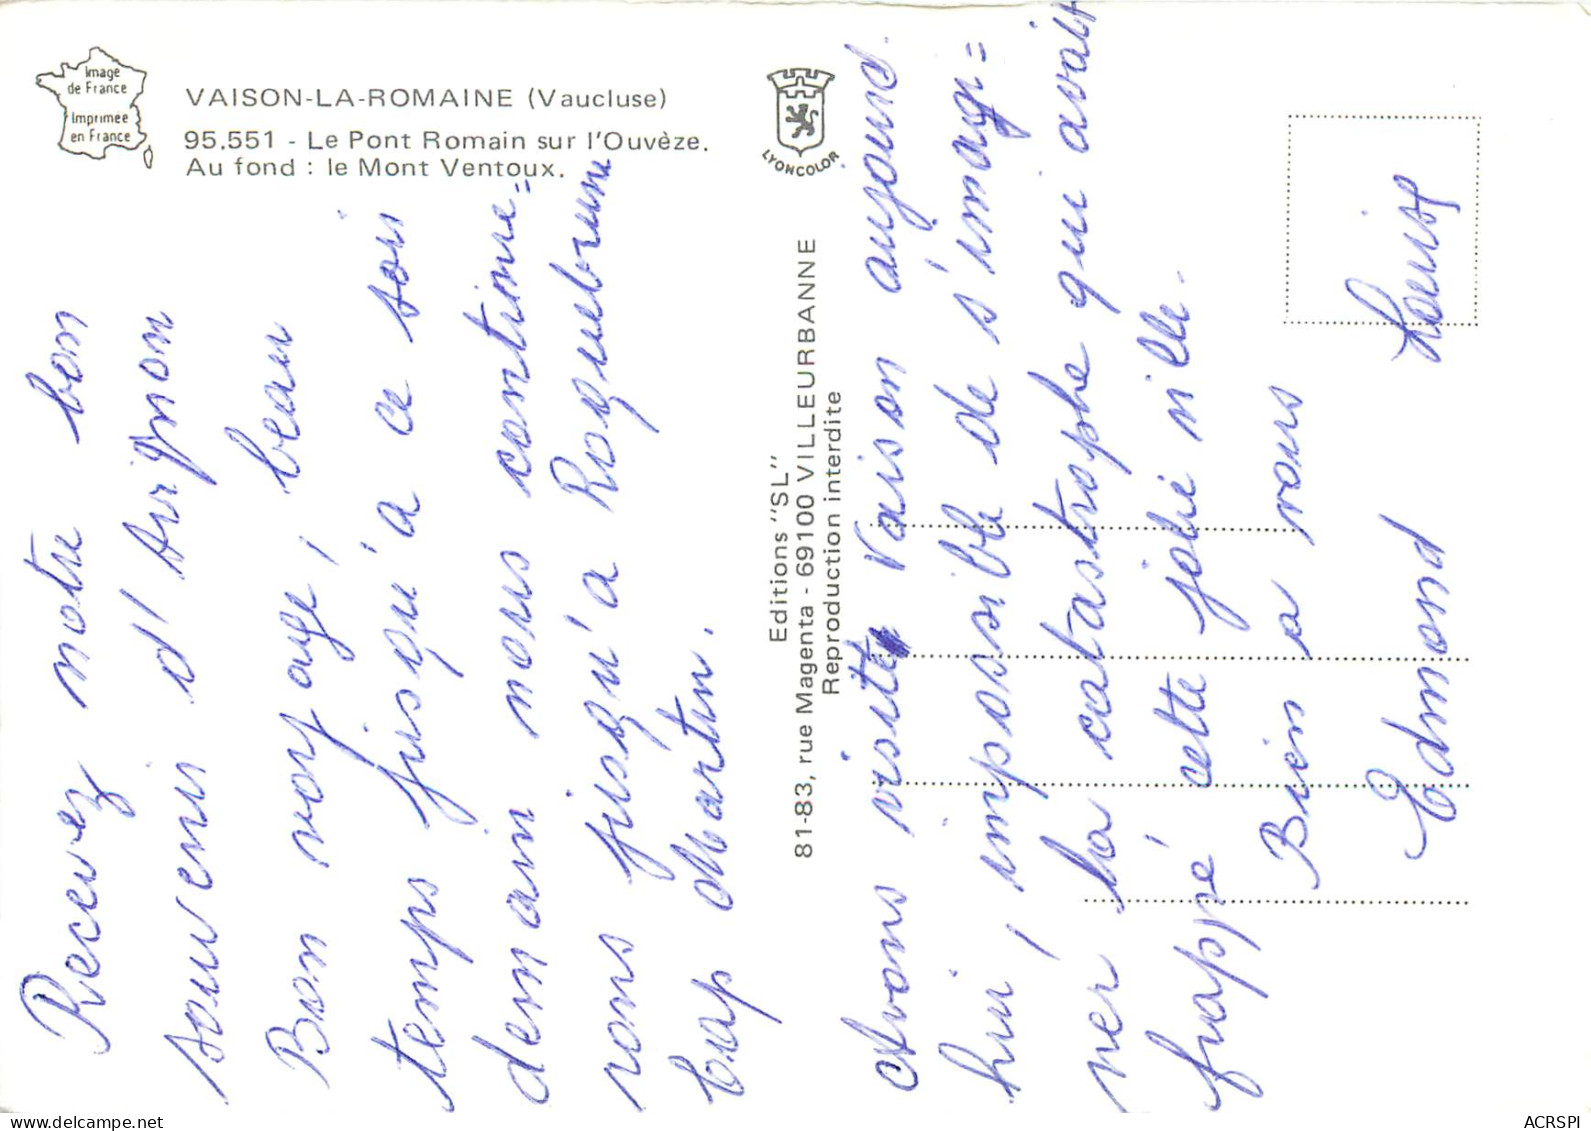 Image
de France
Imprimée
en France
VAISON-LA-ROMAINE (Vaucluse)
95.551 - Le Pont Romain sur l'Ouvèze.
Au fond : le Mont Ventoux.
LYONCOLOR
Editions "SL"
81-83, rue Magenta - 69100 VILLEURBANNE
Reproduction interdite
Recevez notre bon
souvenir d'Avignon
Bon voyage, beau
temps jusqu'à ce soir
demain nous continue=
rons jusqu'à Roquebrune
Cap Martin.
Avons visité Vaison aujourd.
hui, impossible de s'imagi=
ner la catastrophe qui avait
frappé cette jolie ville.
Bien a vous
Edmond Louise
ACRSPI